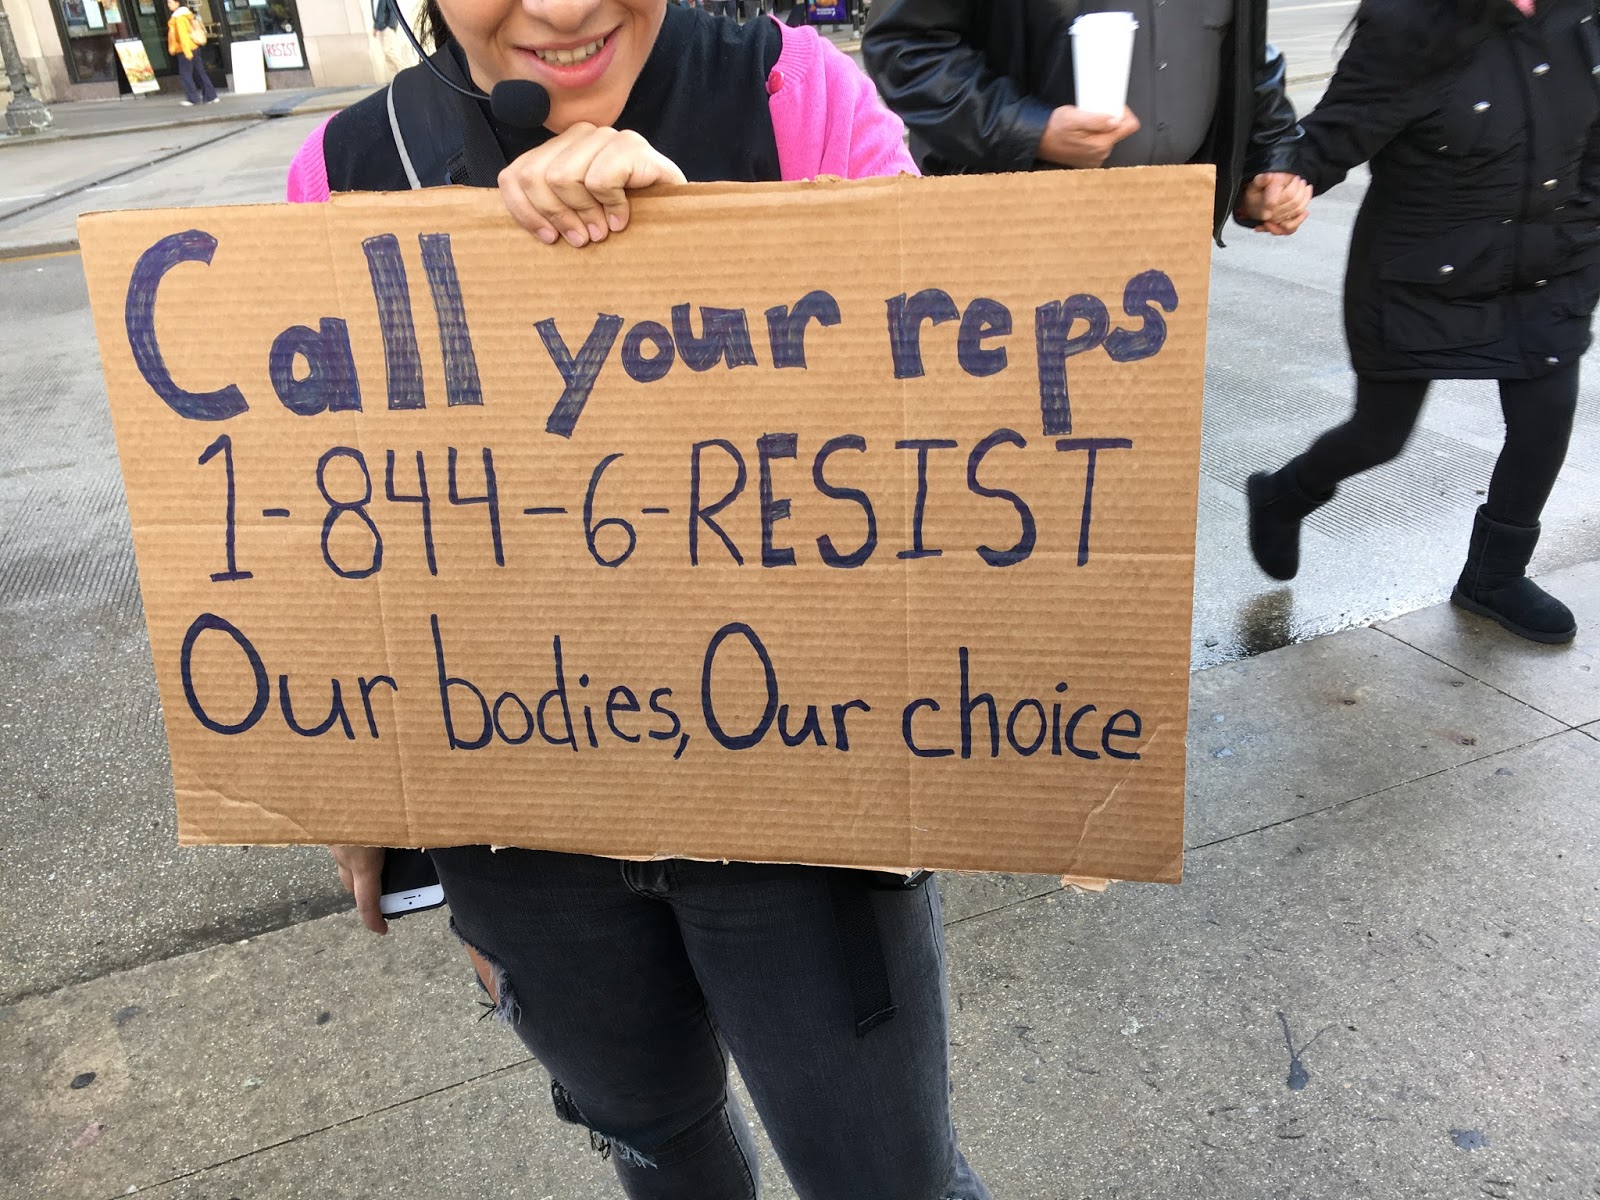 RESIST
Call your reps
1-844-6-RESIST
Our bodies, Our choice